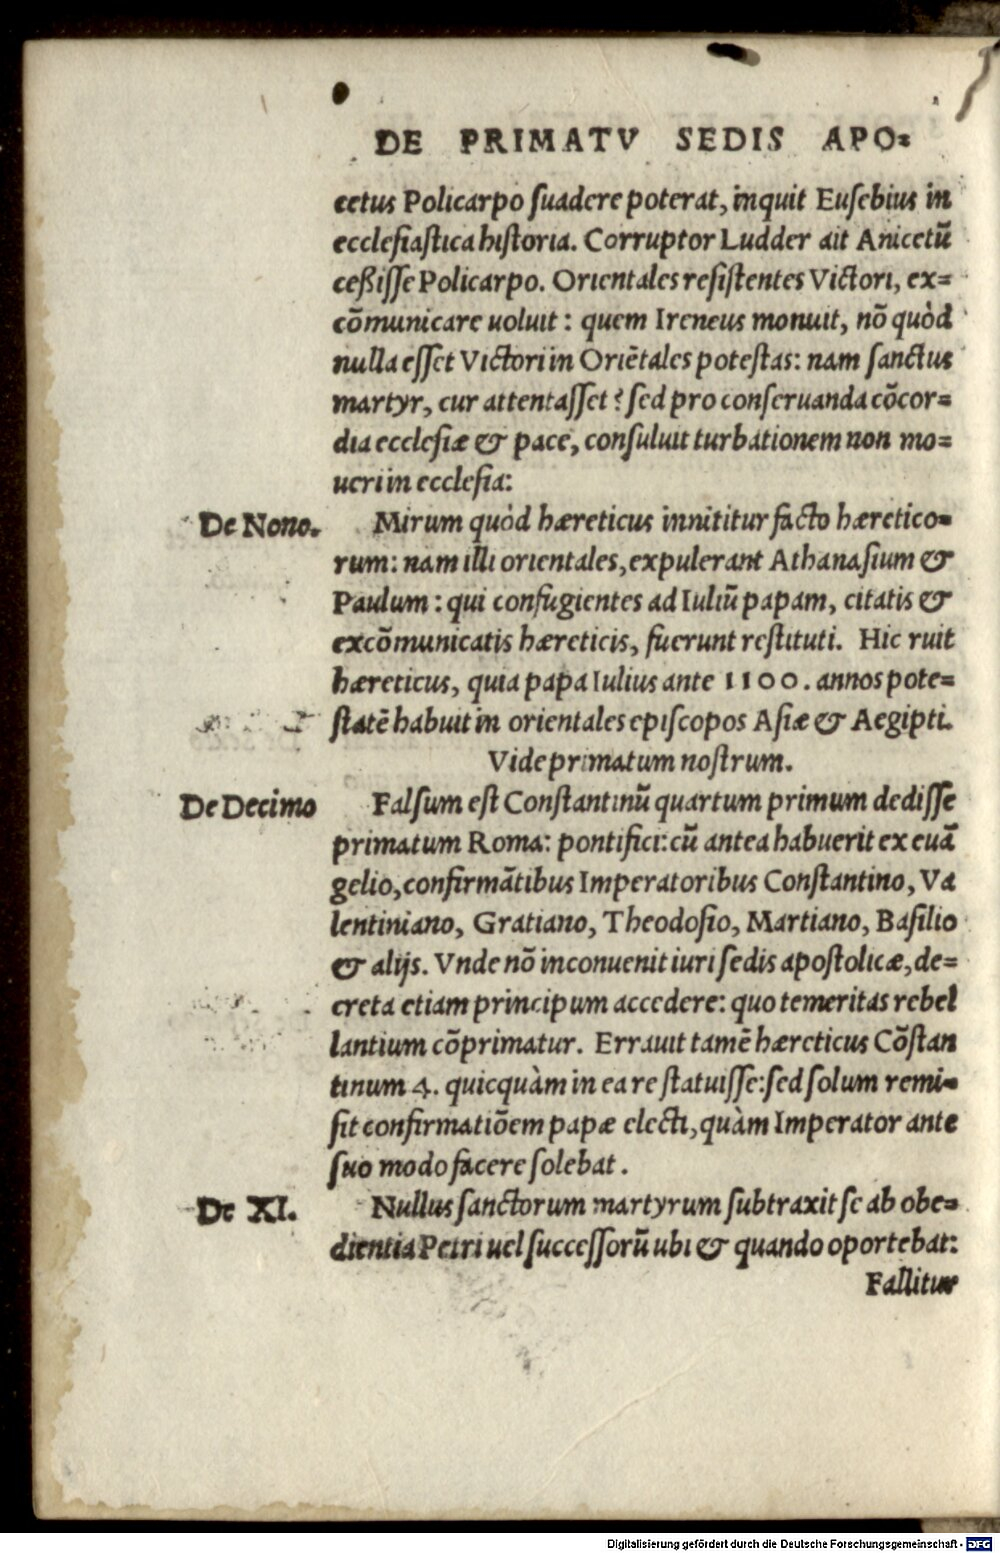 DE PRIMATV SEDIS APO=
cetus Policarpo ſuadere poterat, inquit Euſebius in
eccleſiaſtica hiſtoria. Corruptor Ludder ait Anicetũ
ceßiſſe Policarpo. Orientales reſiſtentes Victori, ex=
cõmunicare uoluit: quem Ireneus monuit, nõ quòd
nulla eſſet Victori in Oriẽtales poteſtas: nam ſanctus
martyr, cur attentaſſet? ſed pro conſeruanda cõcor=
dia eccleſiæ & pace, conſuluit turbationem non mo=
ueri in eccleſia:
De Nono.
Mirum quòd hæreticus innititur facto hæretico=
rum: nam illi orientales, expulerant Athanaſium &
Paulum: qui confugientes ad Iuliũ papam, citatis &
excõmunicatis hæreticis, fuerunt reſtituti. Hic ruit
hæreticus, quia papa Iulius ante 1100. annos pote=
ſtatẽ habuit in orientales epiſcopos Aſiæ & Aegipti.
Vide primatum noſtrum.
De Decimo
Falſum eſt Conſtantinũ quartum primum dediſſe
primatum Roma: pontifici: cũ antea habuerit ex euã
gelio, confirmãtibus Imperatoribus Conſtantino, Va
lentiniano, Gratiano, Theodoſio, Martiano, Baſilio
& alijs. Vnde nõ inconuenit iuri ſedis apoſtolicæ, de=
creta etiam principum accedere: quo temeritas rebel
lantium cõprimatur. Errauit tamẽ hæreticus Cõſtan
tinum 4. quicquàm in ea re ſtatuiſſe: ſed ſolum remi=
ſit confirmatiõem papæ electi, quàm Imperator ante
ſuo modo facere ſolebat.
De XI.
Nullus ſanctorum martyrum ſubtraxit ſe ab obe=
dientia Petri uel ſucceſſorũ ubi & quando oportebat:
Fallitur
Digitalisierung gefördert durch die Deutsche Forschungsgemeinschaft - DFG